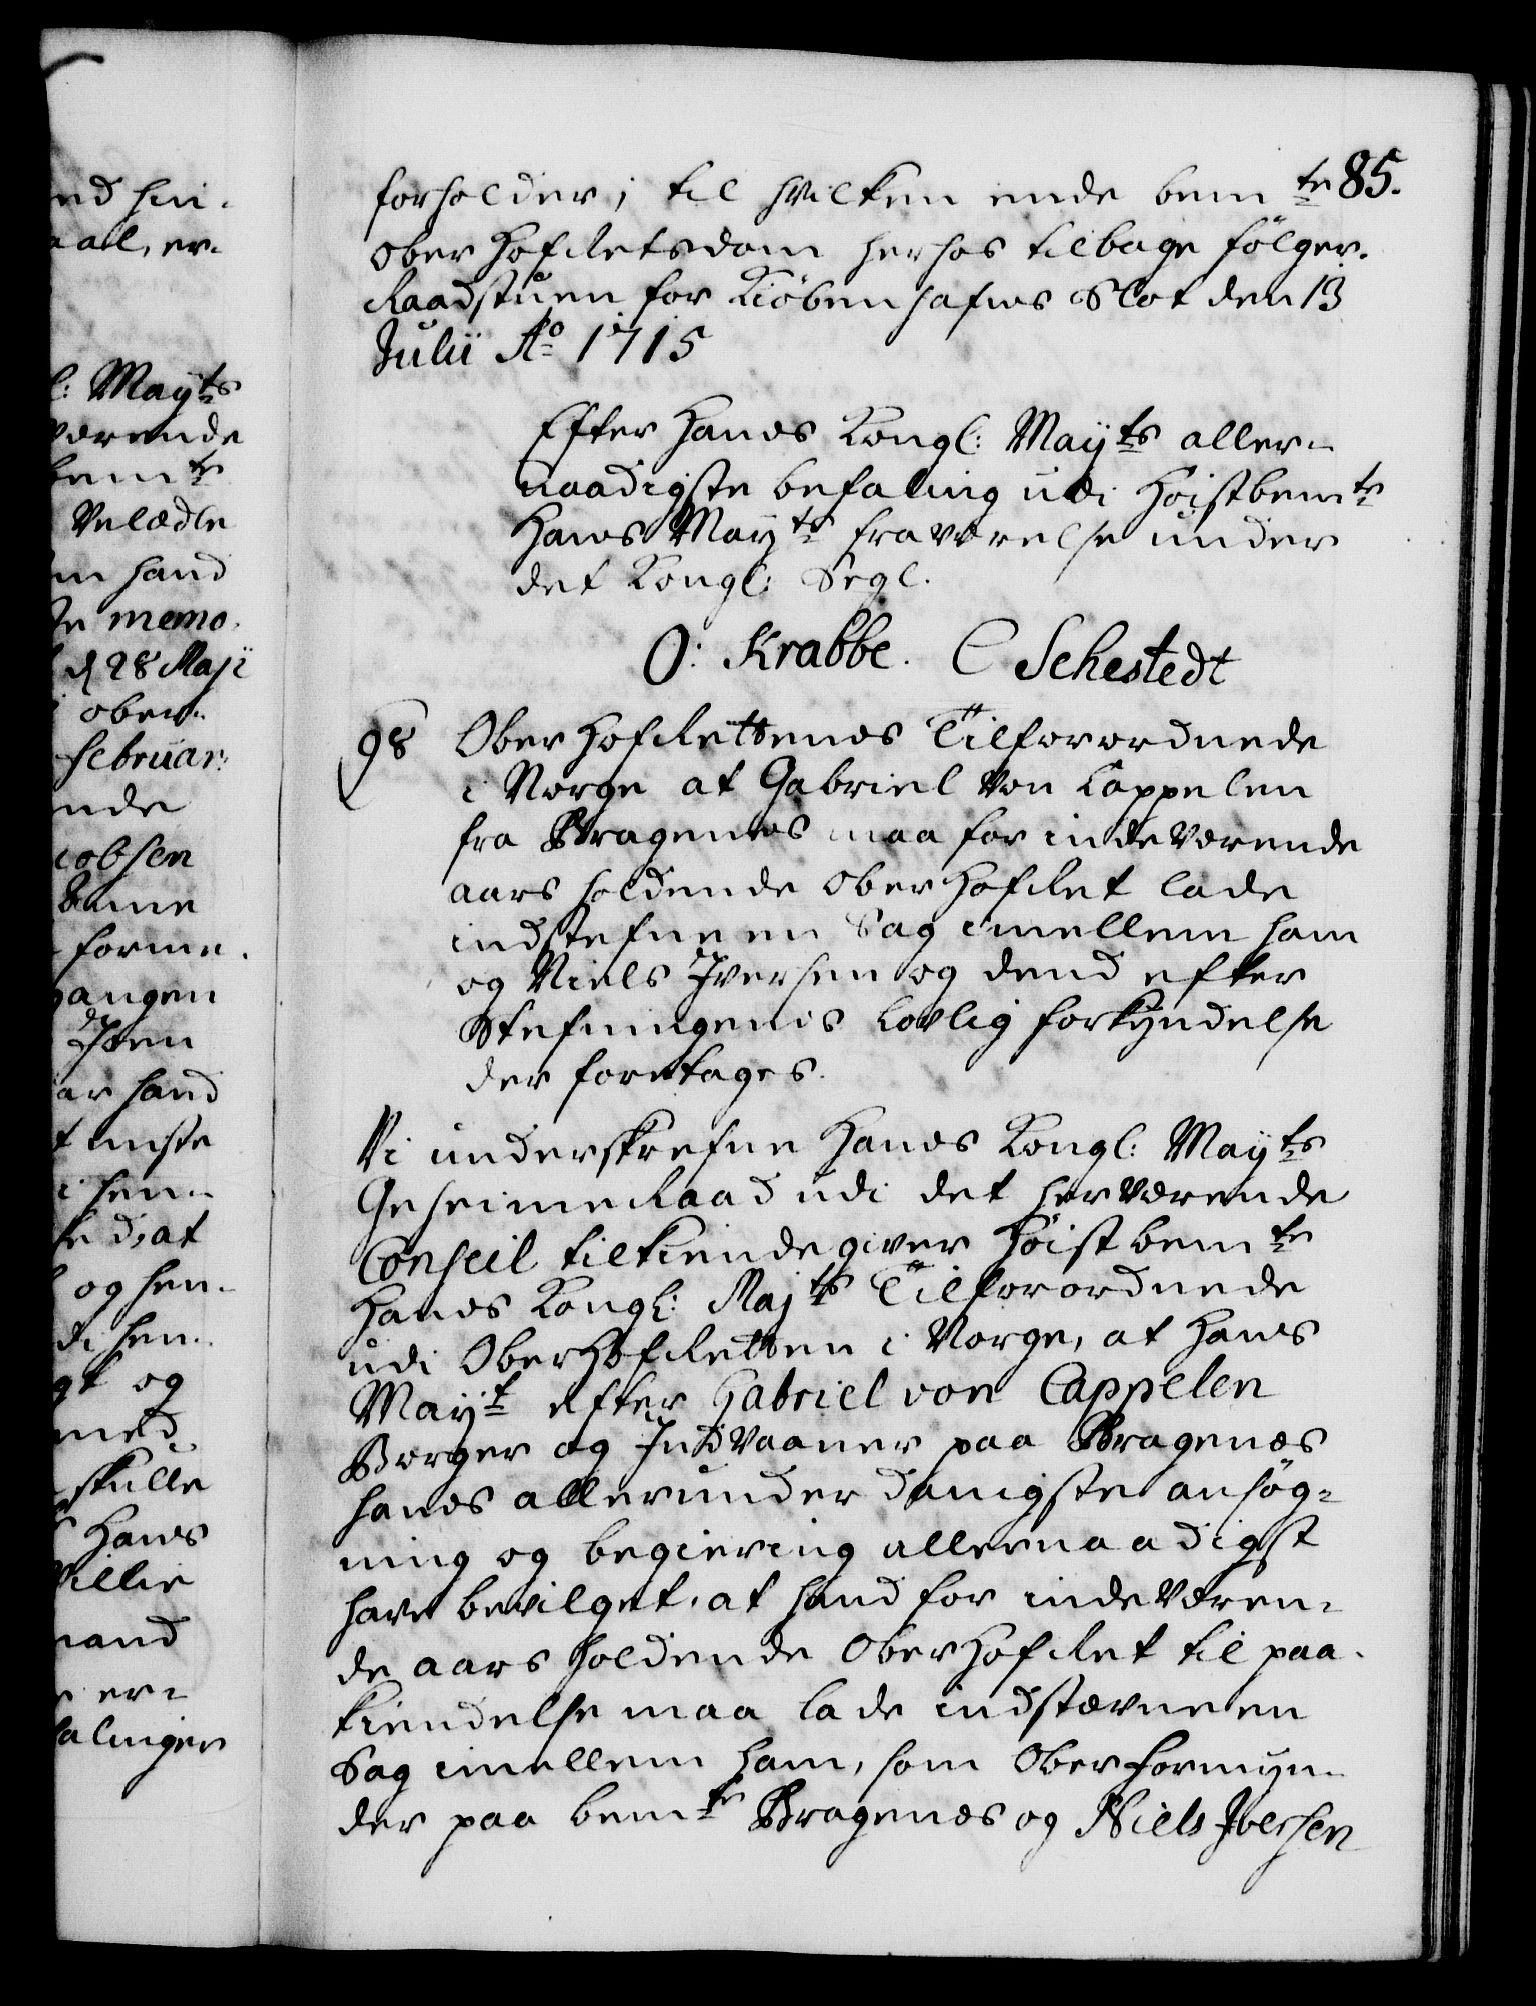 85.
forholder; til hvilken ende bemte
Ober Hof Retsdom herhos tilbage følger.
Raadstuen for Kiöbenhafns Slot den 13
Julii Ao 1715
Efter Hands Kongl: Mayts aller-
naadigste befaling udi Høistbemte
Hans Mayts fraværelse under
det Kongl: Segl.
O: Krabbe. C Sehestedt
98 Ober Hof Rettens Tilforordnede
i Norge at Gabriel Von Cappelen
fra Bragenes maa for indeværende
aars holdende Ober Hof Ret lade
indstefne en Sag imellem ham
og Niels Iversen og dend efter
Stefningens Lovlig forkyndelse
der foretages.
Vi underskrefne Hands Kongl: Mayts
Geheime Raad udi det herværende
Conseil tilkiendegiver Høistbemte
Hands Kongl: Majts Tilforordnede
udi Ober Hof Retten i Norge, at Hans
Mayt efter Gabriel von Cappelen
Borger og Indvaaner paa Bragenes
hands allerunderdanigste ansøg-
ning og begiering allernaadigst
have bevilget, at hand for indeværen-
de aars holdende Ober Hof Ret til paa-
kiendelse maa lade indstævne en
Sag imellem ham, som Ober formyn-
der paa bemte Bragenes og Niels Iversen
l: Mayts
værende
bemte
Velædle
hand
memo
d 28 Maji
ober-
februar:
ende
cobsen
denne
forme
gangen
Iten
hand
hen-
at
og hen-
og
med
skulle
Hans
Villie
er-